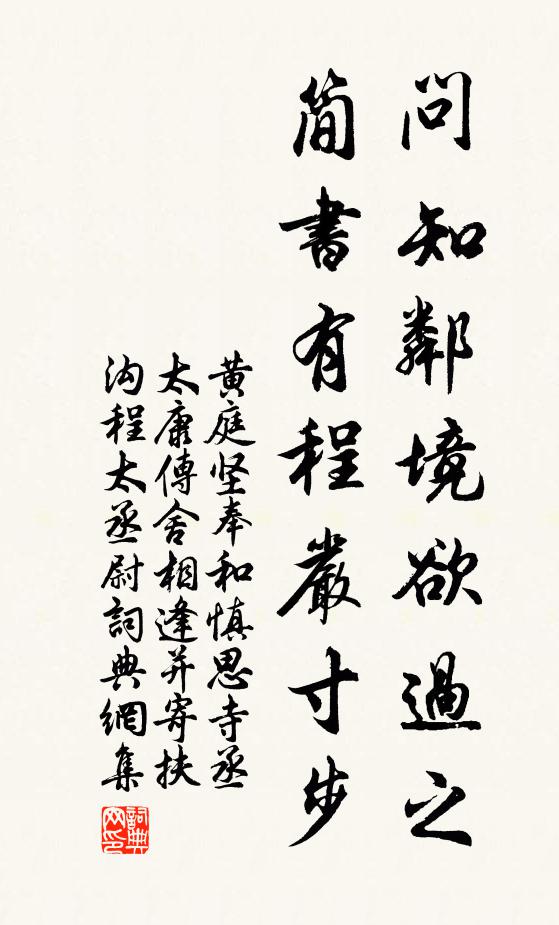 問知鄰境欲過之
簡書有程嚴寸步
黄庭坚奉和慎思寺丞
太康傳舍相逢并寄扶
沟程太丞尉詞典網集
詞典網印